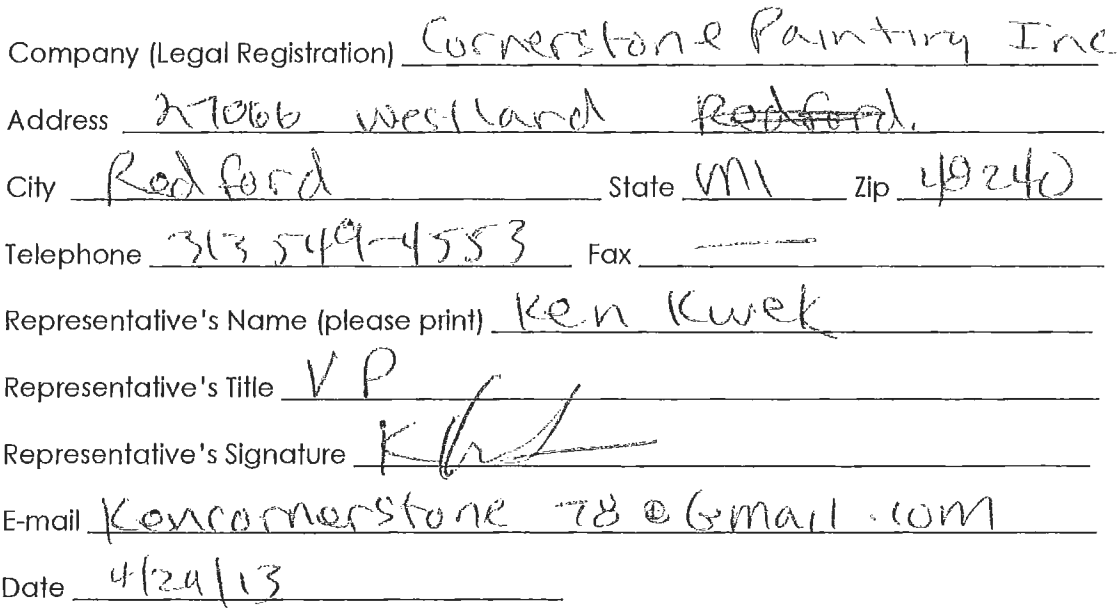 Company (Legal Registration) Cornerstone Painting Inc
Address 27066 westland Redford.
City Redford State MI Zip 48240
Telephone 313 549-4553 Fax —
Representative's Name (please print) Ken Kwek
Representative's Title V P
Representative's Signature
E-mail Kencornerstone 78@Gmail.com
Date 4/29/13